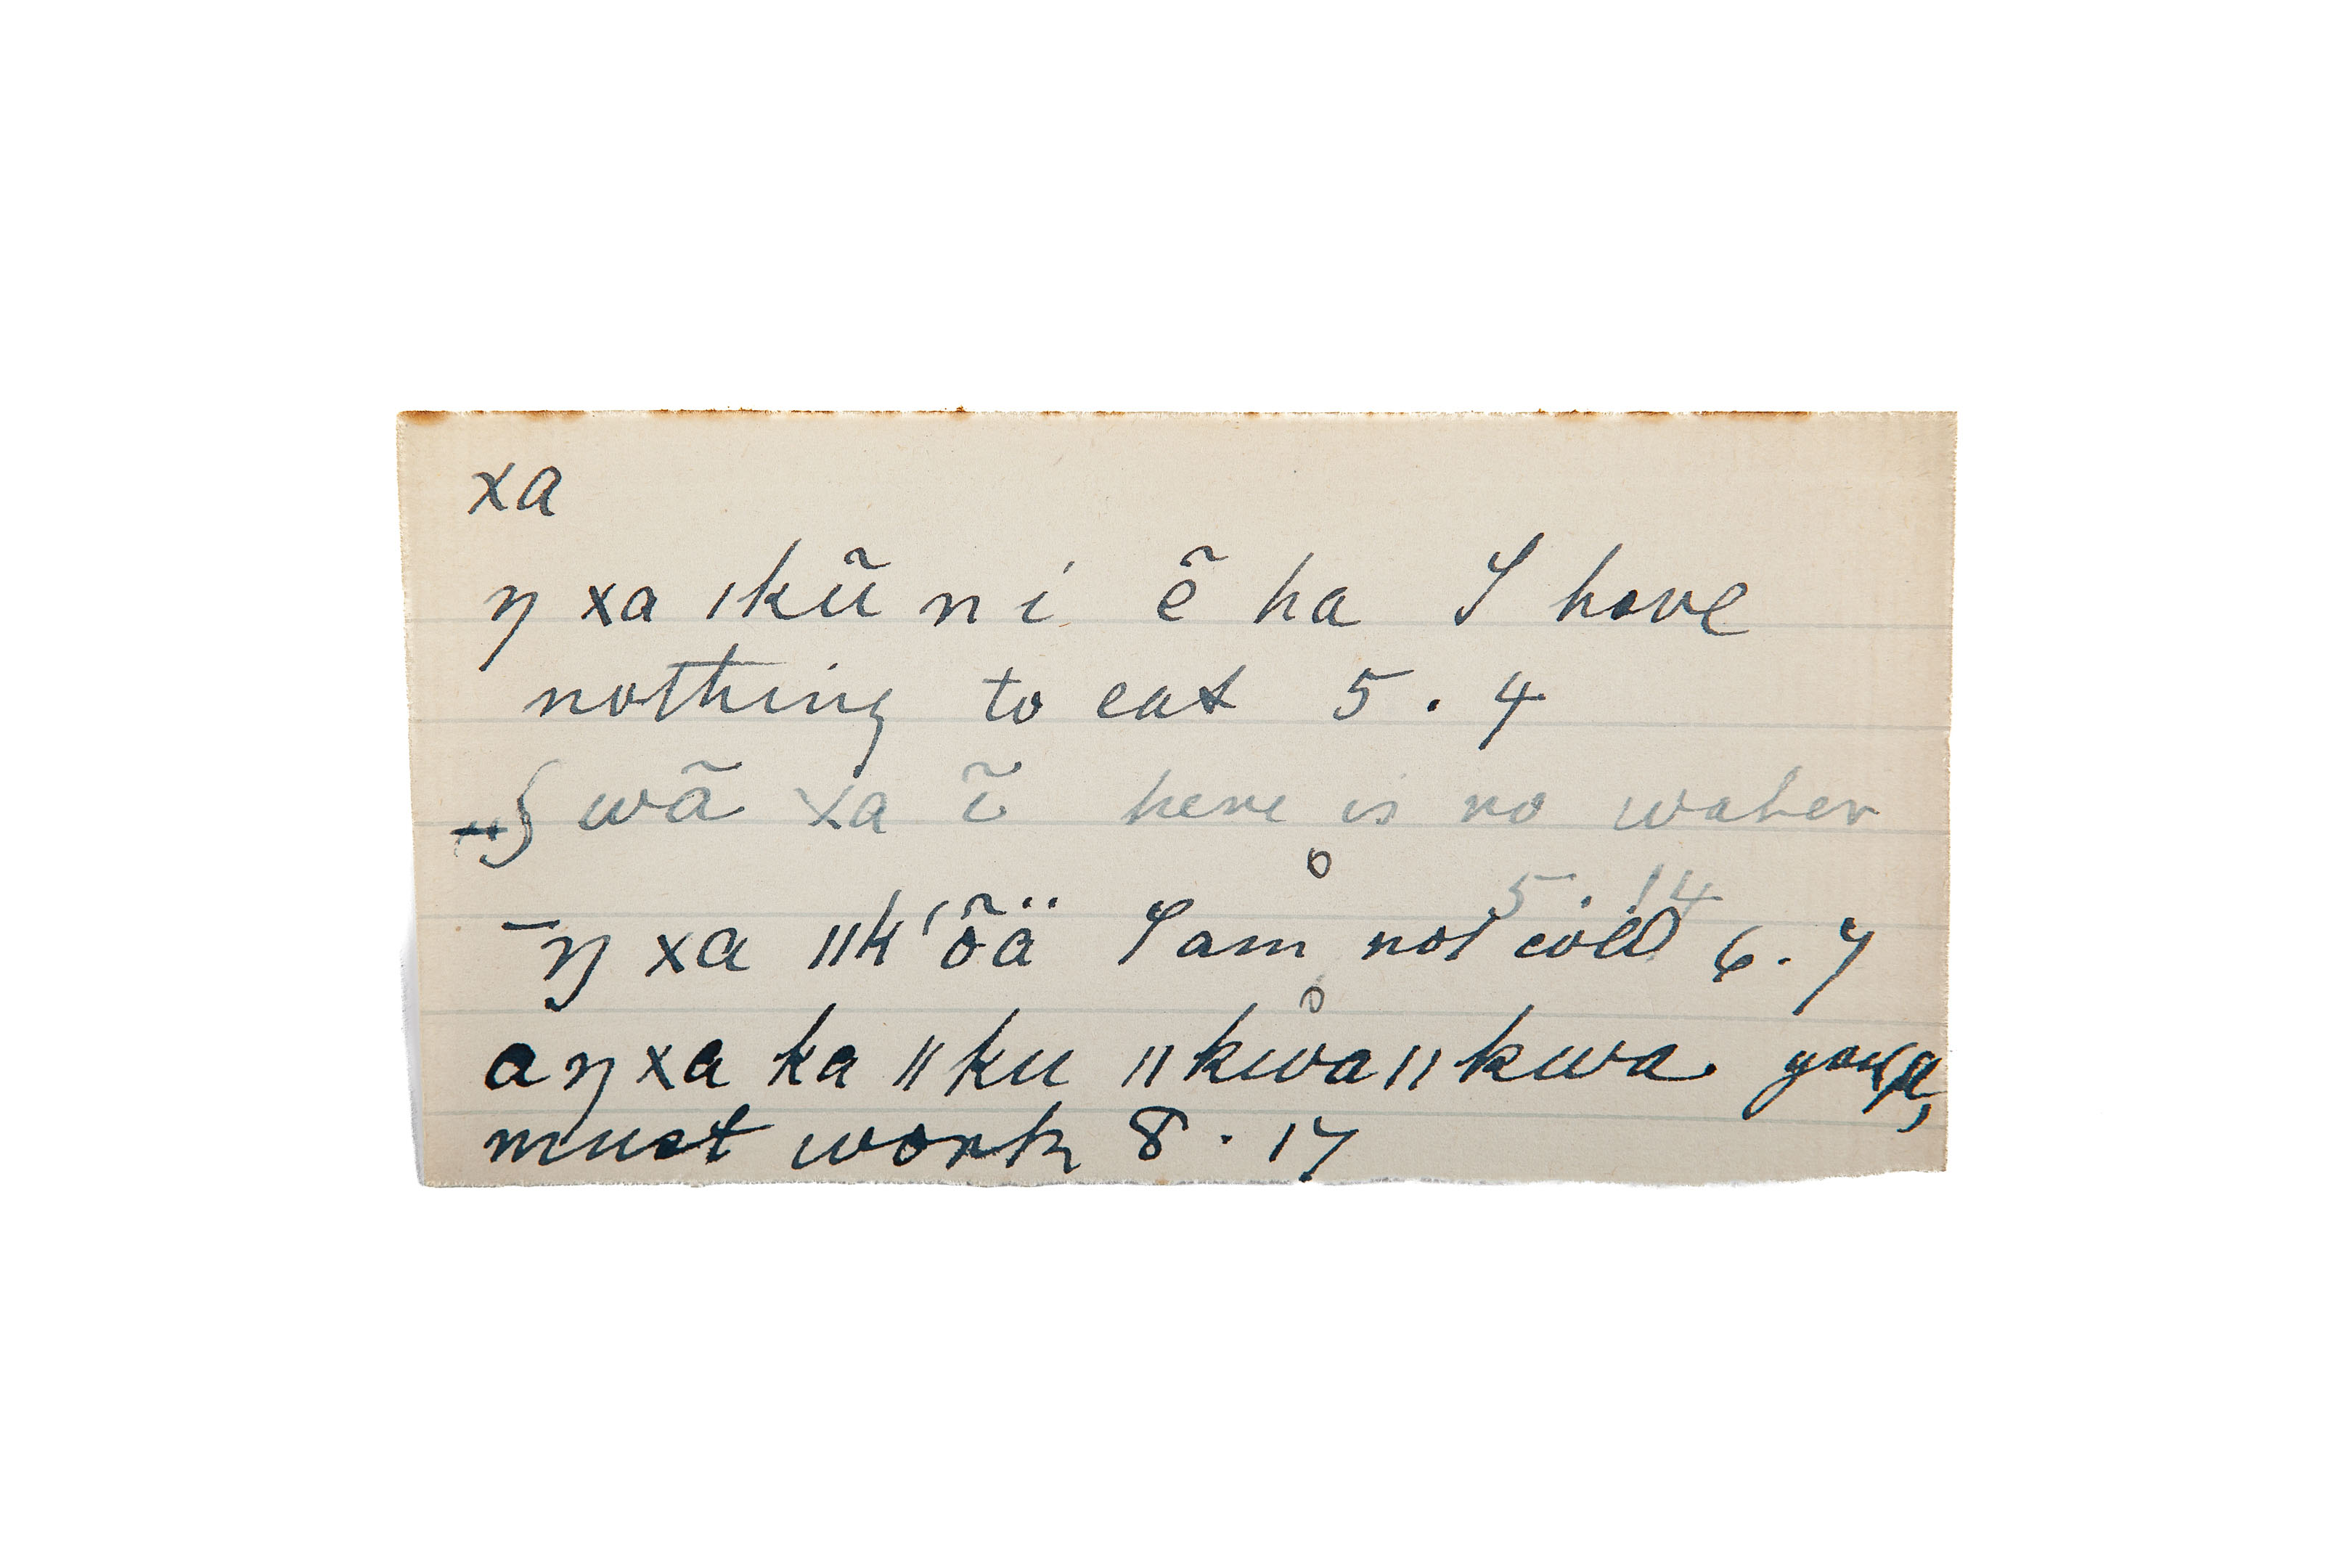 xa
ŋ xa ǀkũ ni ẽ ha I have
nothing to eat 5.4
wã xa ĩ here is no water
5.14
ŋ xa ǁk'õä I am not cold 6.7
aŋ xa ka ǁku ǁkwaǁkwa
must work 8.17